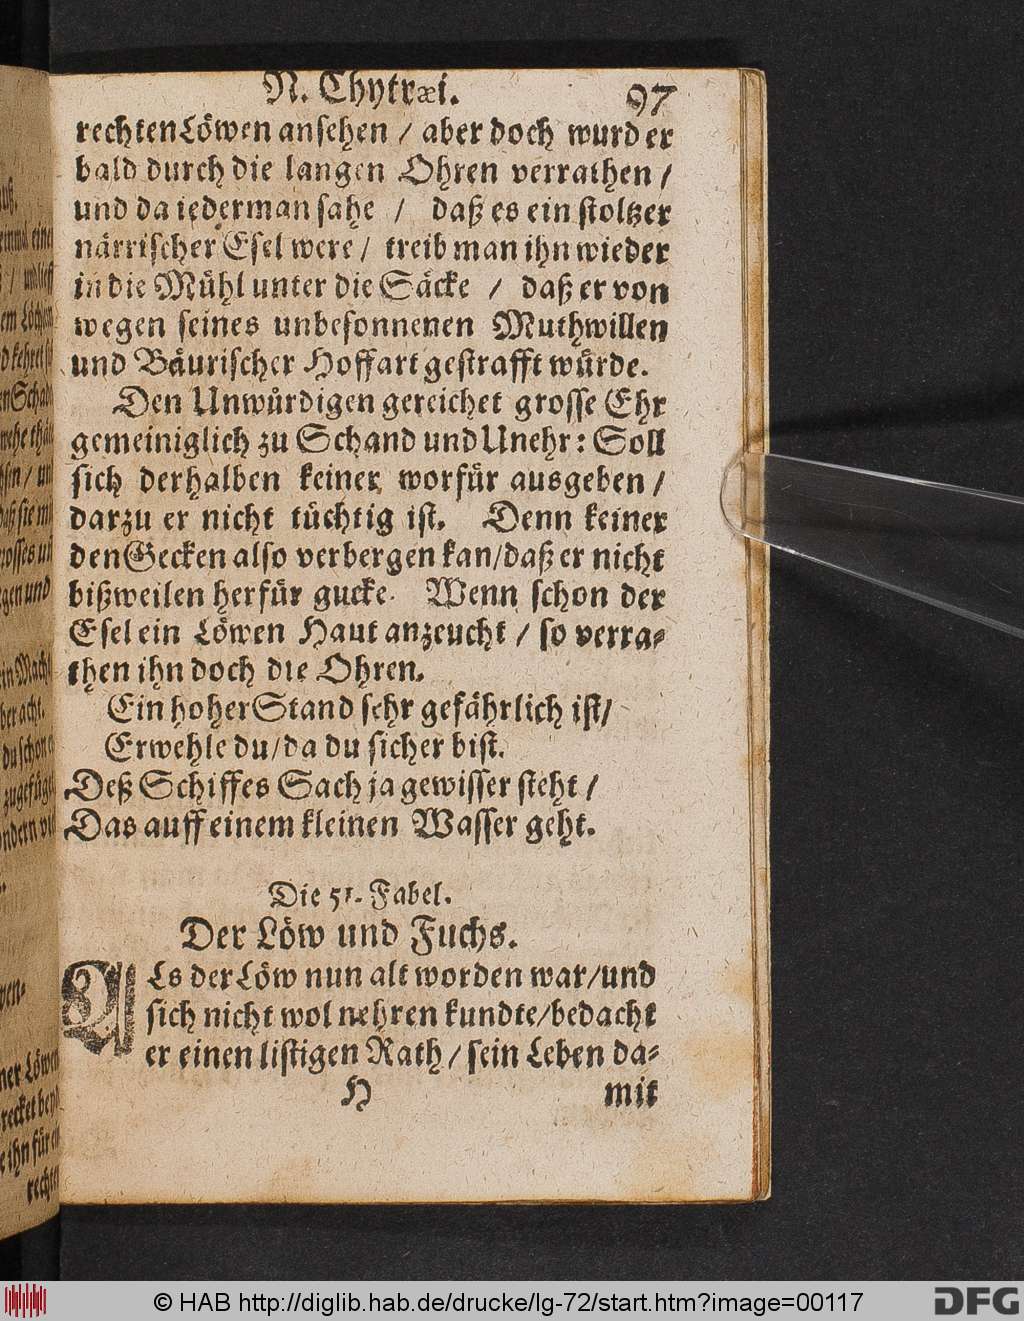 N. Chytræi. 97
rechten Löwen ansehen / aber doch wurd er
bald durch die langen Ohren verrathen /
und da iederman sahe / daß es ein stoltzer
närrischer Esel were / treib man ihn wieder
in die Mühl unter die Säcke / daß er von
wegen seines unbesonnenen Muthwillen
und Bäurischer Hoffart gestrafft würde.
Den Unwürdigen gereichet grosse Ehr
gemeiniglich zu Schand und Unehr: Soll
sich derhalben keiner worfür ausgeben /
darzu er nicht tüchtig ist. Denn keiner
den Gecken also verbergen kan/daß er nicht
bißweilen herfür gucke. Wenn schon der
Esel ein Löwen Haut anzeucht / so verra-
then ihn doch die Ohren.
Ein hoher Stand sehr gefährlich ist/
Erwehle du/da du sicher bist.
Deß Schiffes Sach ja gewisser steht /
Das auff einem kleinen Wasser geht.
Die 51. Fabel.
Der Löw und Fuchs.
ALs der Löw nun alt worden war/und
sich nicht wol nehren kundte/bedacht
er einen listigen Rath / sein Leben da-
H mit
© HAB http://diglib.hab.de/drucke/lg-72/start.htm?image=00117
DFG